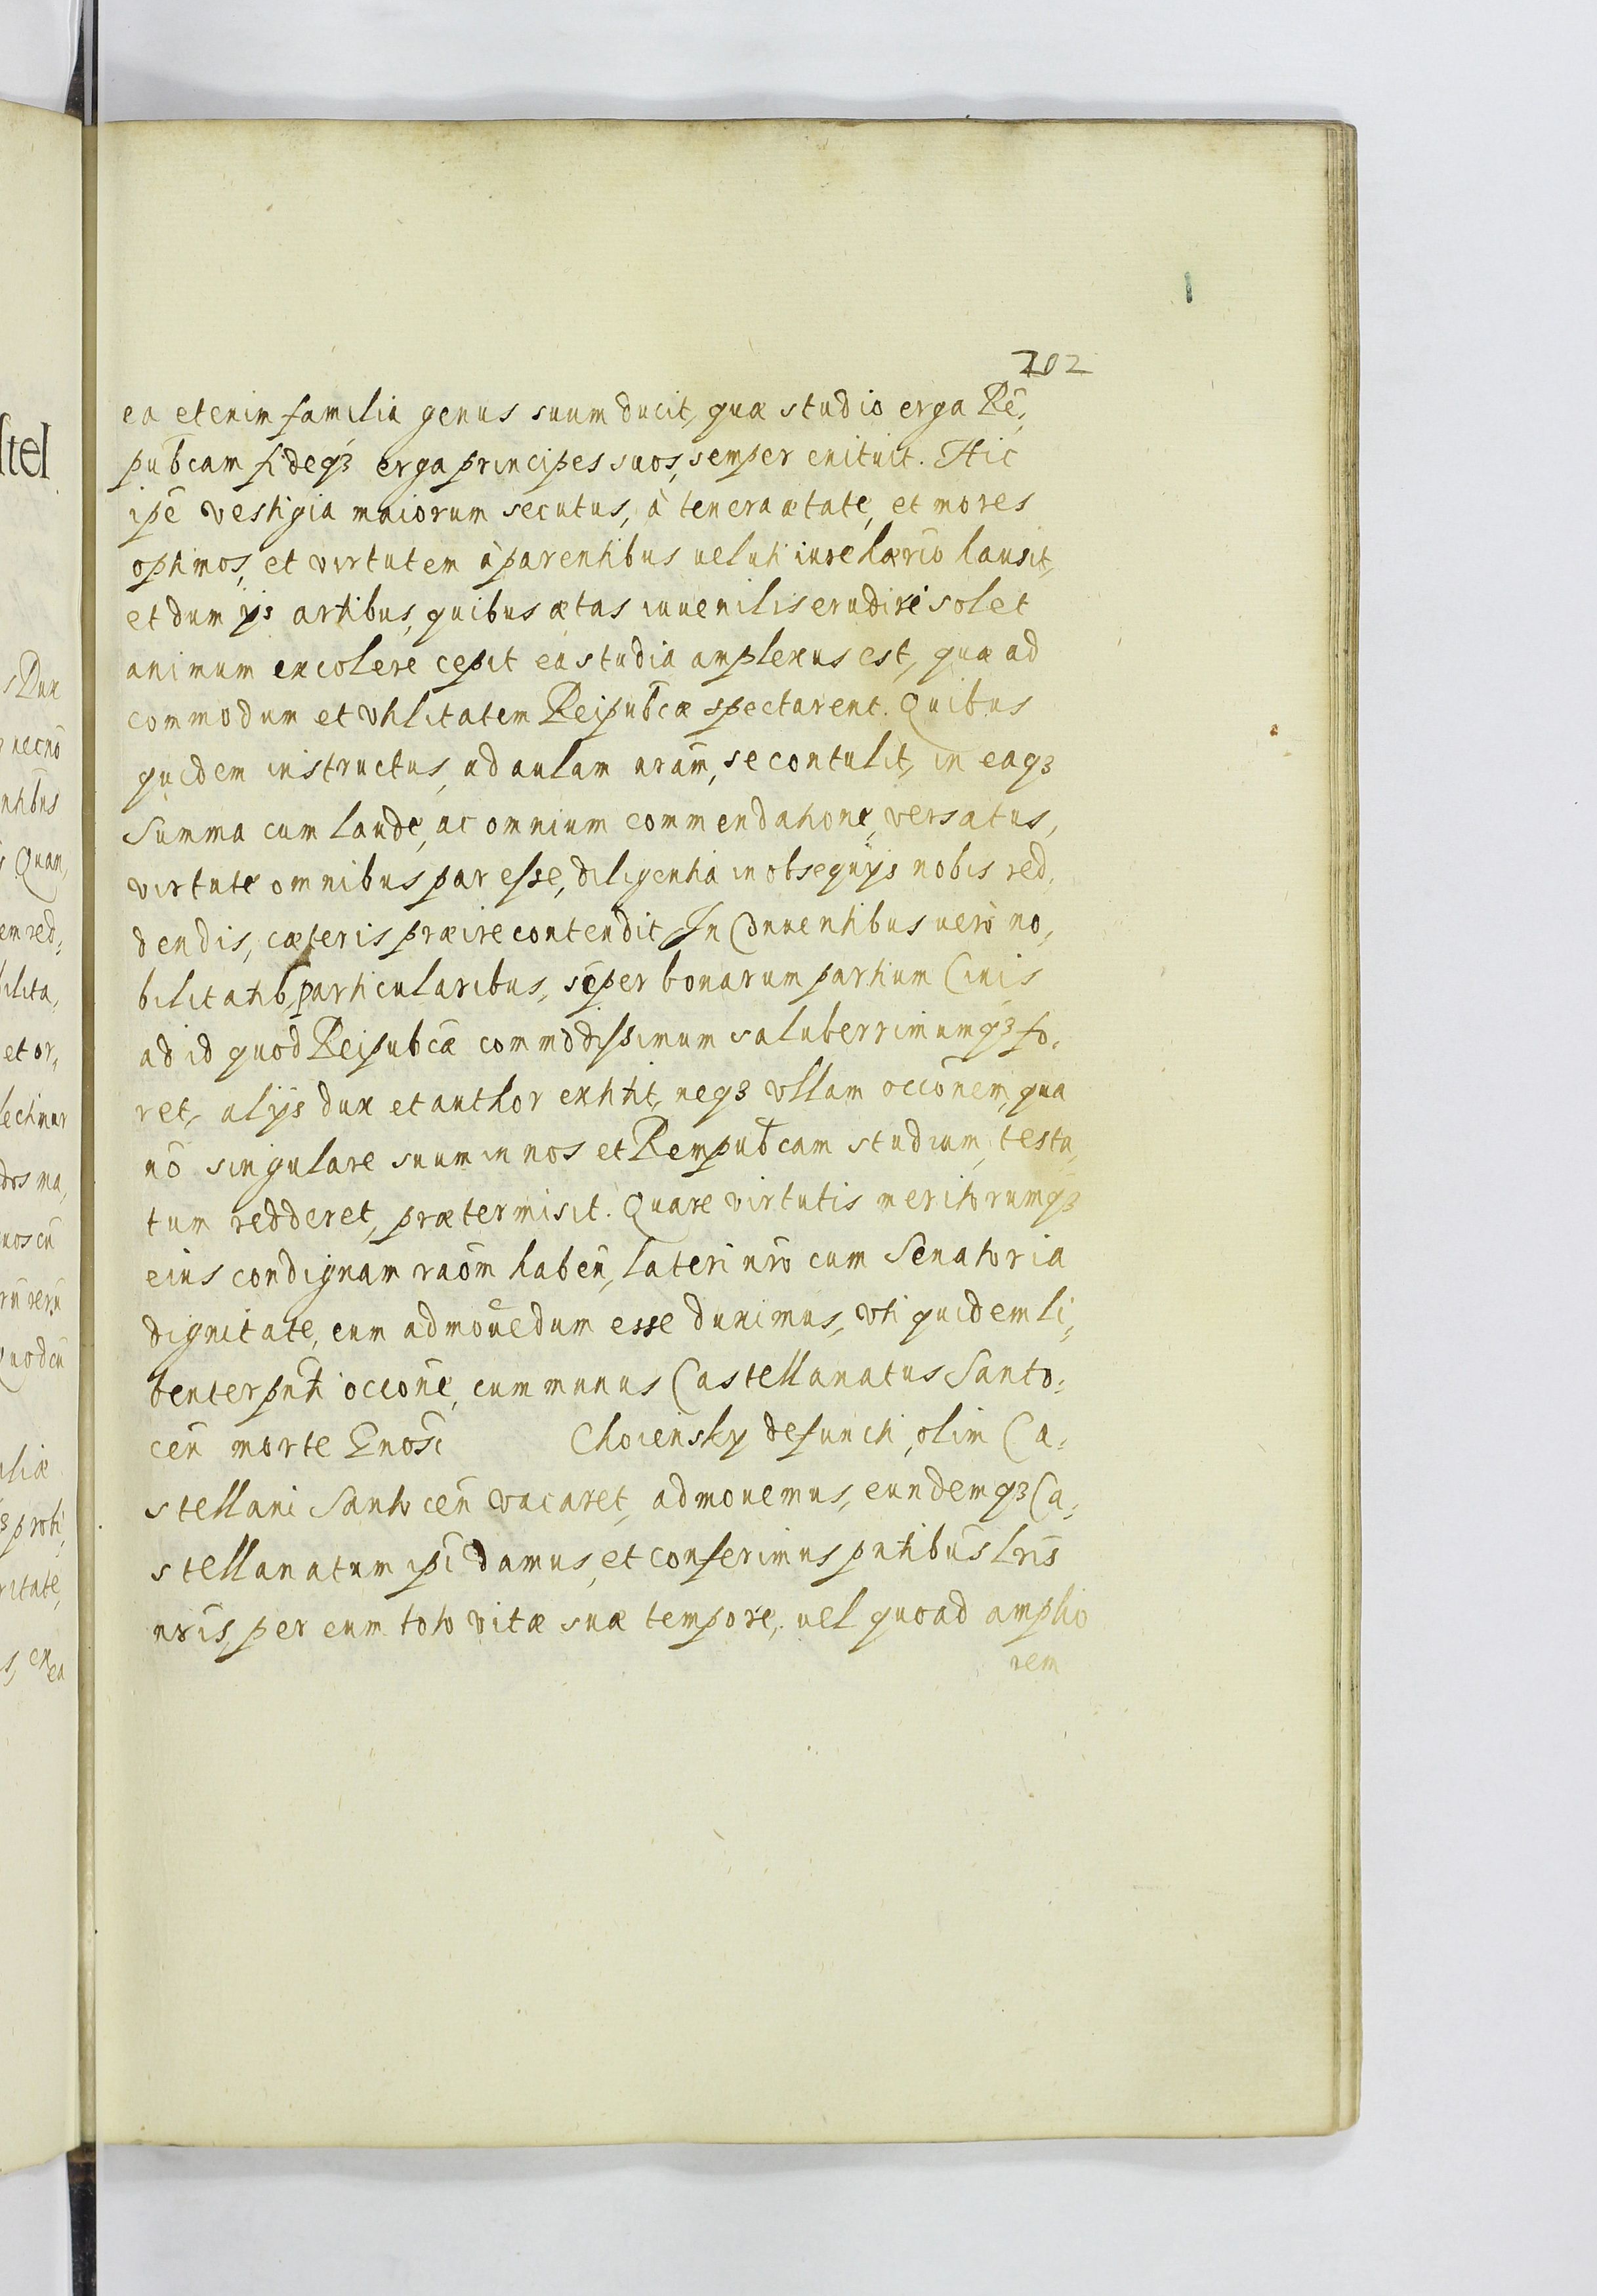 202
ea etenim familia genus suum ducit, quæ studio erga Rē,
pub̄cam fideqȝ erga principes suos, semper enituit. Hic
ip̄e vestigia maiorum secutus, à tenera ætate, et mores
optimos, et virtutem à parentibus veluti iure hær̄io hausit,
et dum ijs artibus, quibus ætas iuuenilis erudiri solet
animum excolere cepit ea studia amplexus est, quæ ad
commodum et vtilitatem Reipub̄cæ spectarent. Quibus
quidem instructus, ad aulam nr̄am, se contulit, in eaqȝ
Summa cum laude, ac omnium commendatione, versatus,
virtute omnibus par esse, diligentia in obsequijs nobis red,
dendis, cæteris præire contendit, In Conuentibus uerò no,
bilitatib, particularibus, sēper bonarum partium Ciuis
ad id quod Reipub̄cæ commodissimum saluberrimumqȝ fo,
ret, alijs dux et author extitit, neqȝ vllam occīonem, qua
nō singulare suum in nos et Rempub̄cam studium, testa,
tum redderet, prætermisit. Quare virtutis meritorumqȝ
eius condignam rāom haben̄, lateri nr̄o cum Senatoria
dignitate, eum admouēdum esse duximus, vti quidem li,
benter pn̄ti occīone, cum munus Castellanatus Santo,
cen̄ morte Gnosī Choiensky defuncti, olim Ca,
stellani Santocen̄ vacaret, admouemus, eundemqȝ Ca,
stellanatum ip̄i damus, et conferimus pn̄tibus lr̄is
nr̄is, per eum toto vitæ suæ tempore, uel quoad amplio
rem